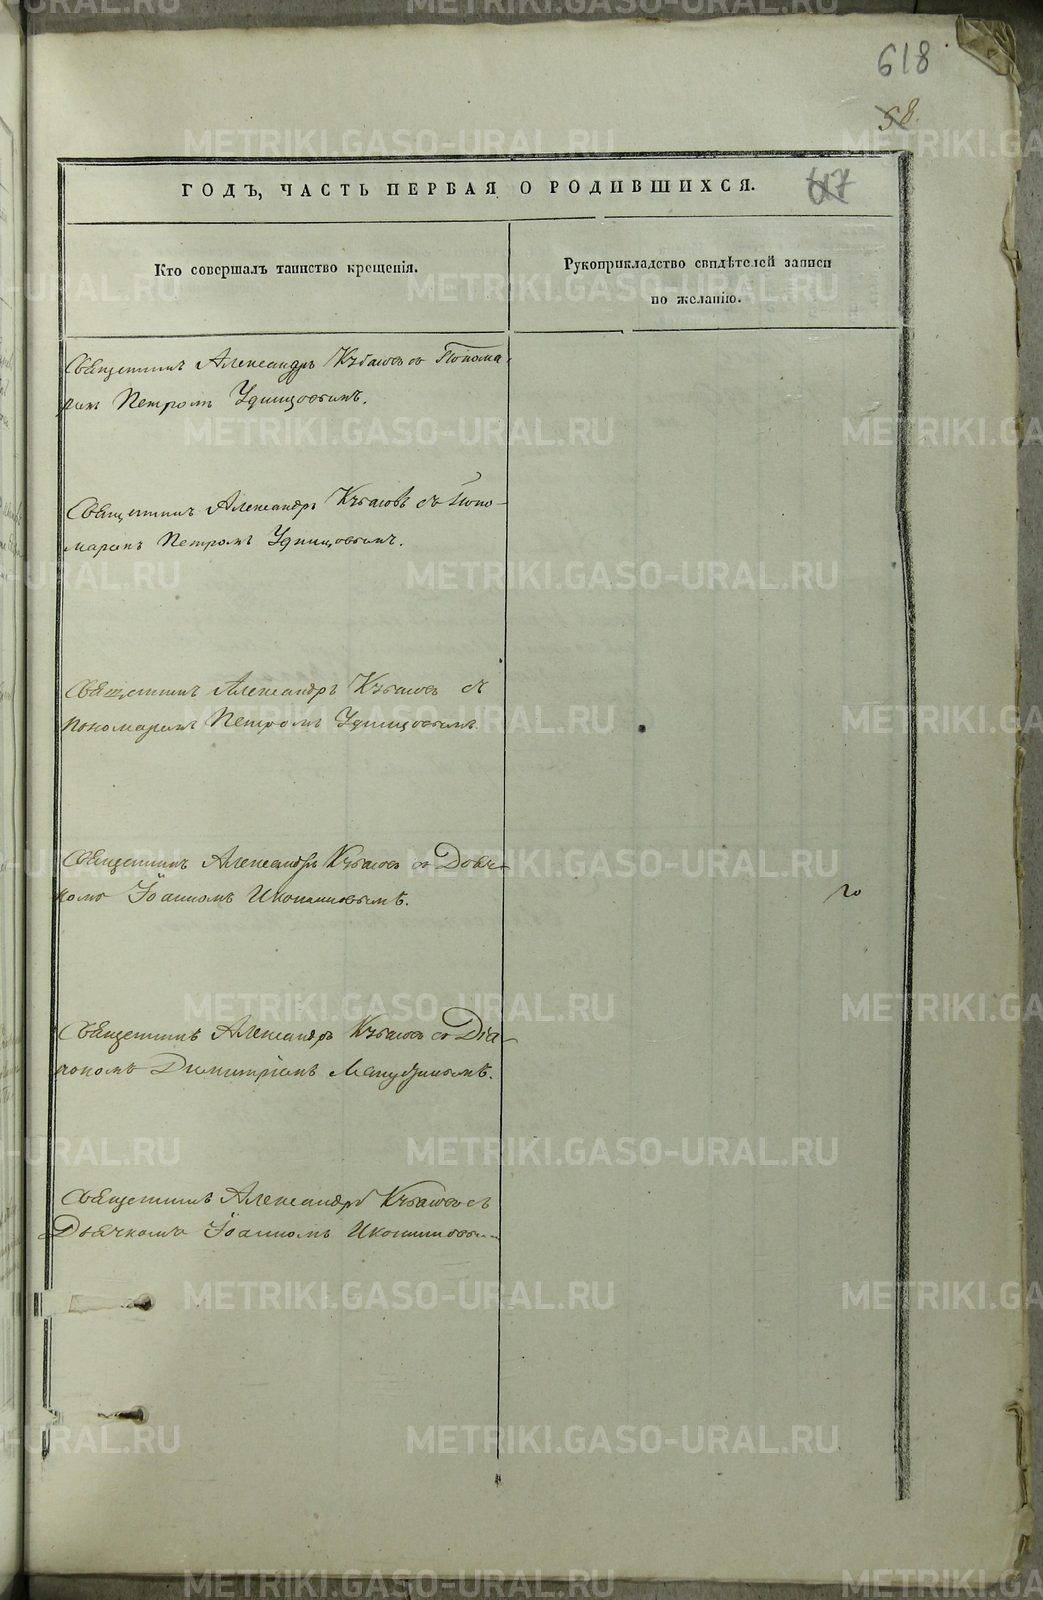 618
58.
617
ГОДЪ, ЧАСТЬ ПЕРВАЯ О РОДИВШИХСЯ.
Кто совершалъ таинство крещенія.
Рукоприкладство свидѣтелей записи
по желанію.
Священникъ Александръ съ Понома-
ремъ Петромъ Удинцовымъ.
Священникъ Александръ съ Поно-
маремъ Петромъ Удинцовымъ.
Священникъ Александръ съ
пономаремъ Петромъ Удинцовымъ.
Священникъ Александръ съ Дьяч-
комъ Іоанномъ Иконниковымъ.
Священникъ Александръ съ Діа-
кономъ Димитріемъ
Священникъ Александръ съ
Дьячкомъ Іоанномъ Иконниковы
METRIKI.GASO-URAL.RU